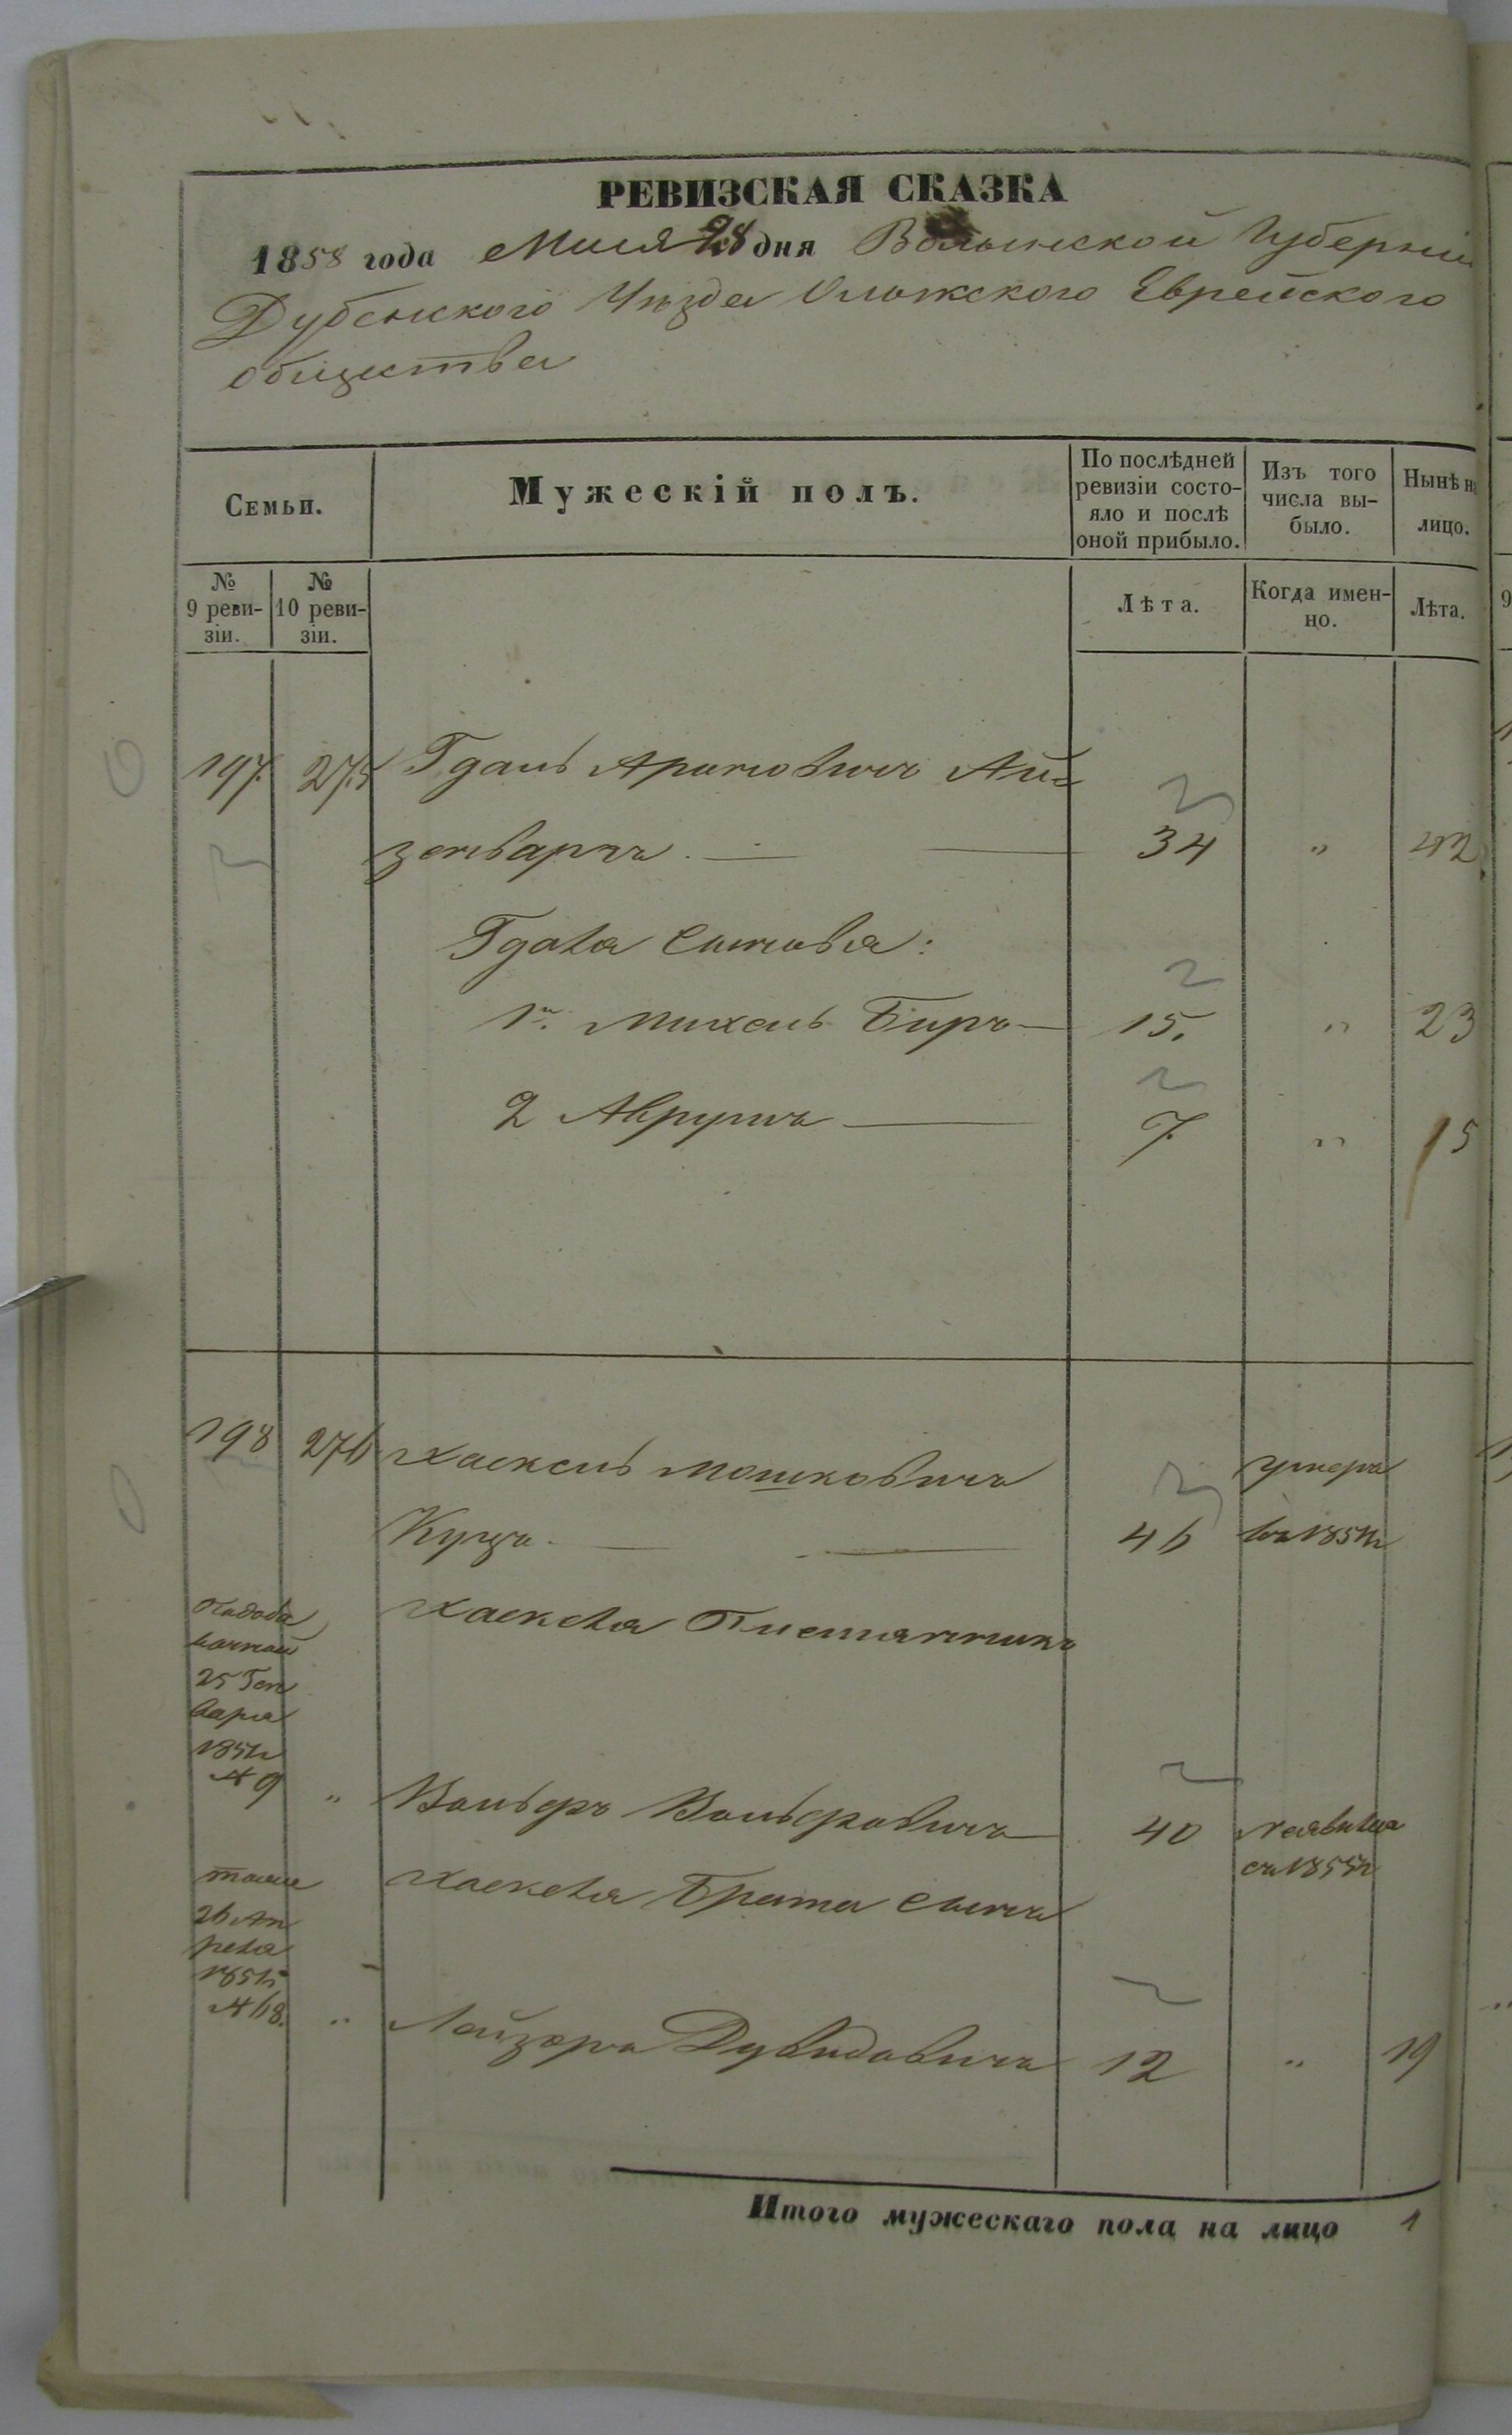 РЕВИЗСКАЯ СКАЗКА
1858 года Мая 28 дня Волынской Губерніи
Дубенского Уѣзда Олыкского Еврейского
общества
Семьи.
Мужескій полъ.
По послѣдней ревизіи состояло и послѣ оной прибыло.
Изъ того числа выбыло.
Нынѣ на лицо.
№ 9 ревизіи.
№ 10 ревизіи.
Лѣта.
Когда именно.
Лѣта.
197. 275 Гдаль Ароновичъ Ай=
зенваргъ. — 34 " 42
Гдаля Сыновья:
1й. Михель Биръ — 15. " 23
2 Аврумъ — 7. " 15
198 276 Хаскель Мошковичъ умеръ
Куцъ. — 46 въ 1854г
Хаскеля Племянникъ
25 Ген
варя
1851г
№ 9 " Вольфъ Вольфовичъ — 40 Неявился
съ 1855г
тоже Хаскеля Брата Сынъ
26 Ап
реля
1851г
№ 68. " Лейзоръ Дувидовичъ 12 " 19
Итого мужескаго пола на лицо